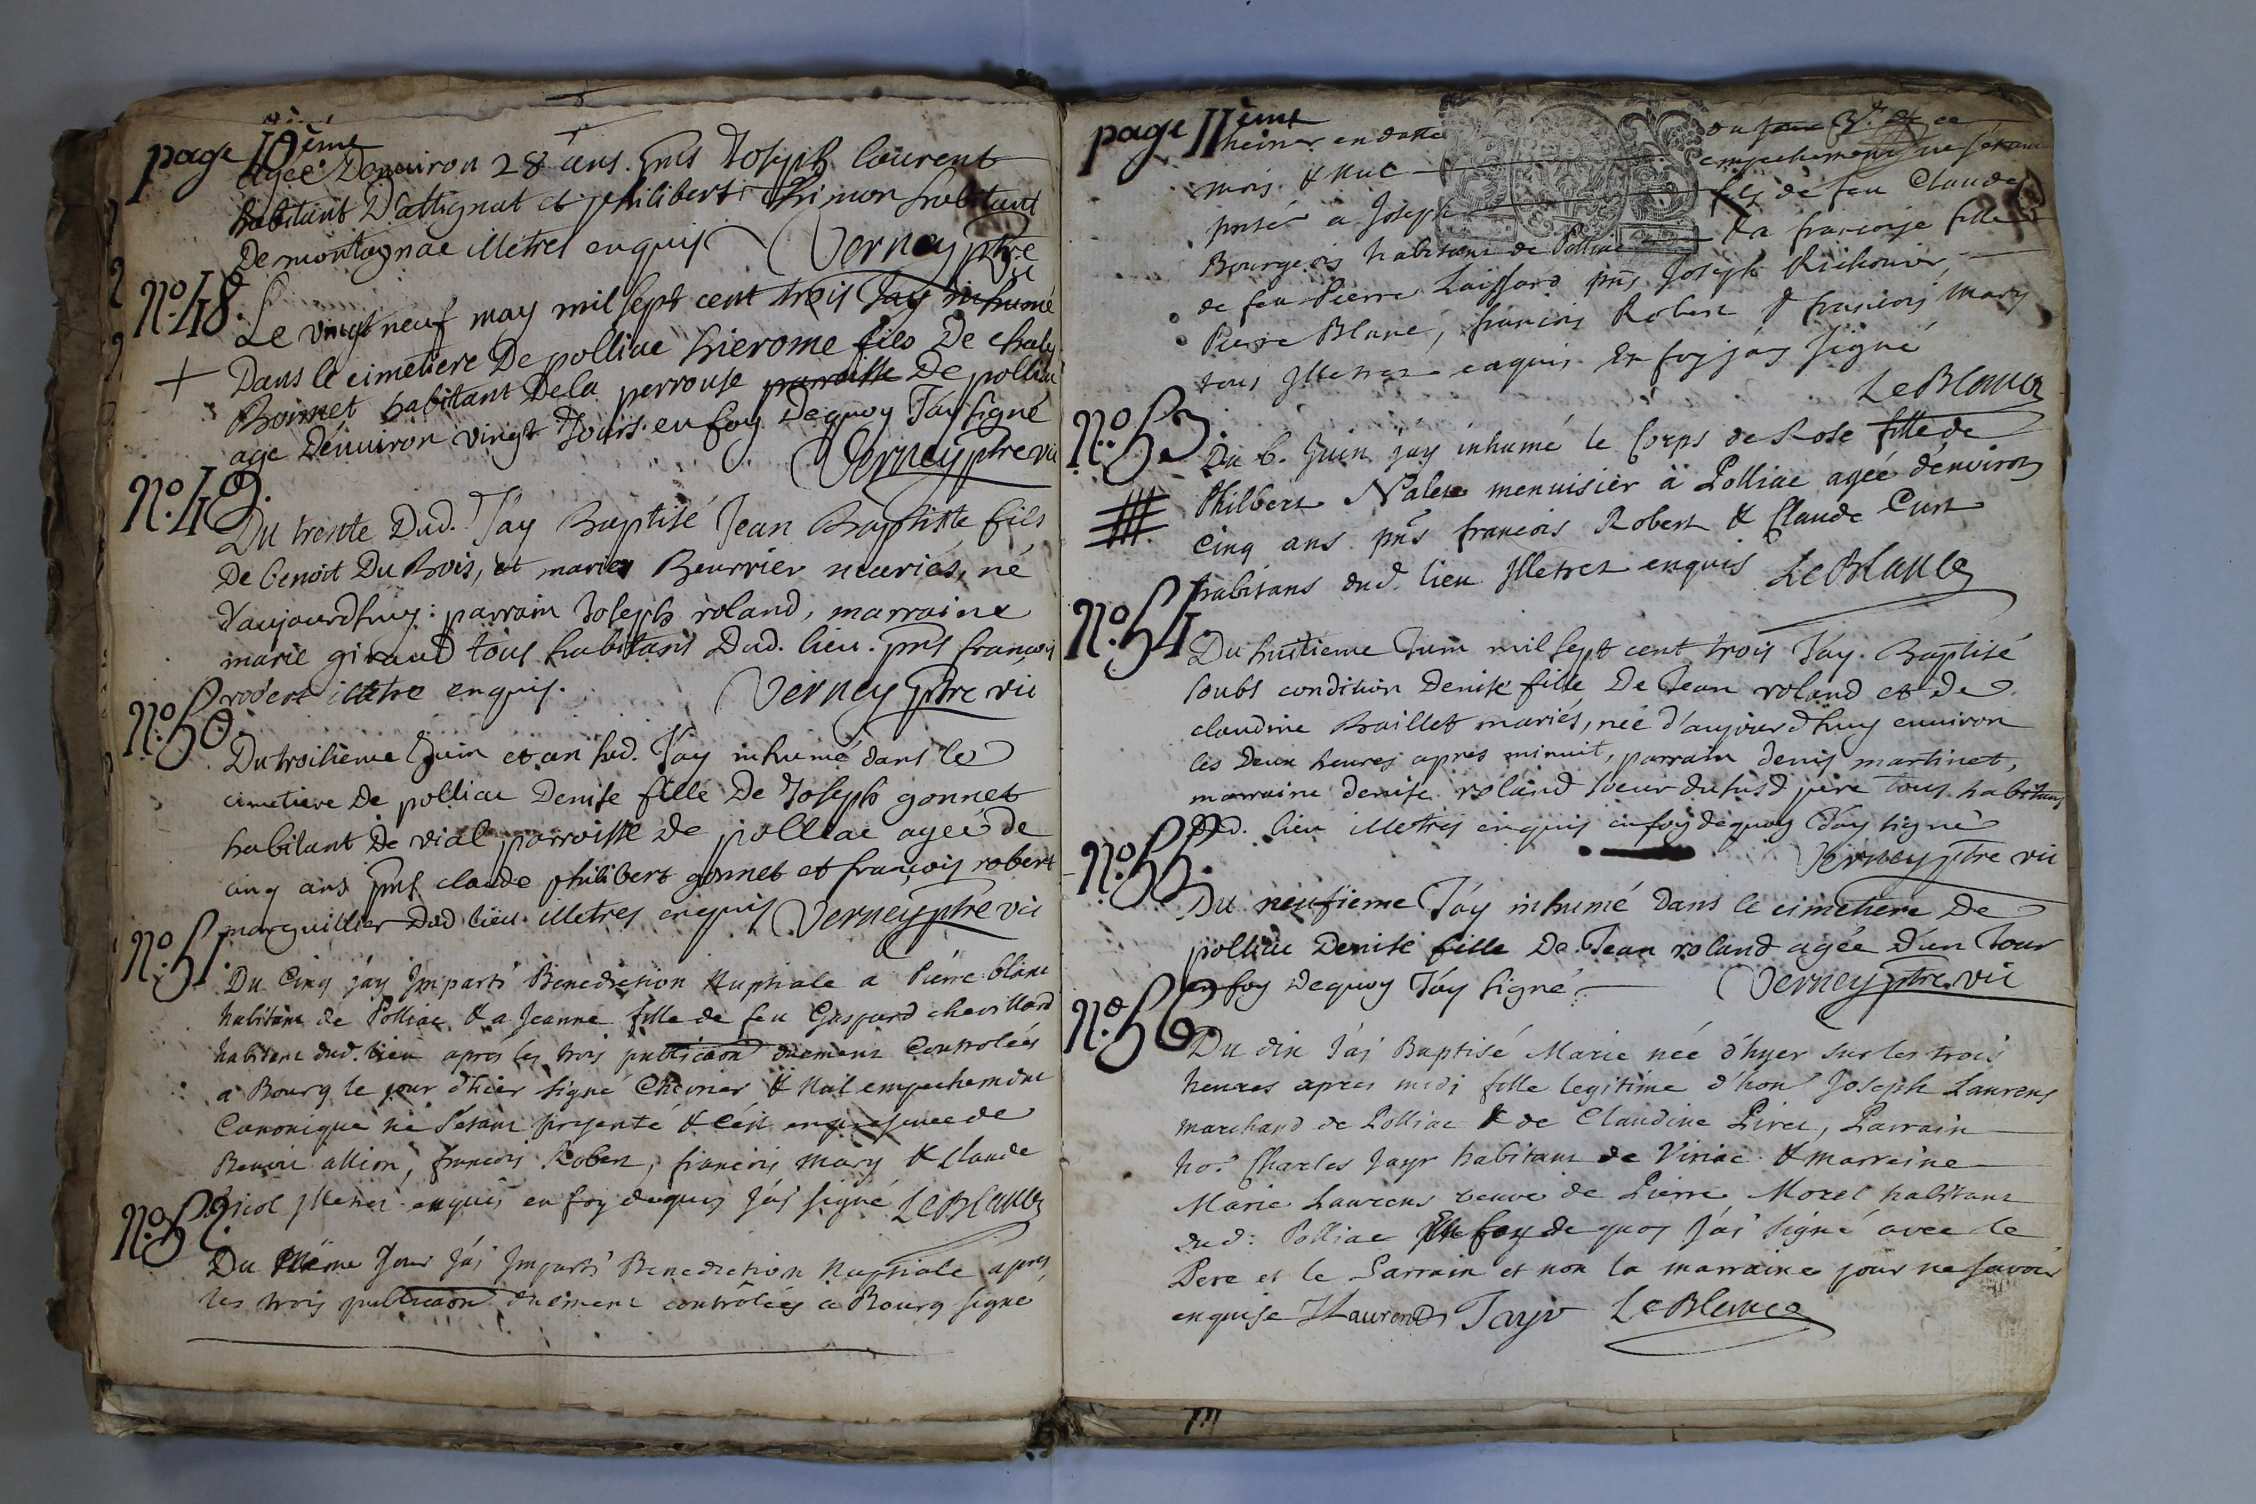 page 10ème
agée Denuiron 28 ans. pnts Joseph laurent
habitant D'attignat et philibert Thimon habitant
De montagnac illetres enquis Verney ptre
vic
N.º 48.
Le vingt neuf may mil sept cent trois J'ay inhumé
Dans le cimetiere De polliac hierome fils De chaly
Boinnet habitant De la perrouse parroisse De polliac
age Denuiron vingt Jours. en foy Dequoy J'ay signé
Verney ptre vic
N.º 49.
Du trente Dud. J'ay Baptisé Jean Baptiste fils
De benoit Du Bois, et marie Beurrier mariés, né
d'aujourdhuy: parrain Joseph roland, marraine
marie giraud tous habitans Dud. lieu. pnts françois
robert illetre enquis. Verney ptre vic
N.º 50.
Du troisieme Juin et an sud. J'ay inhumé dans le
cimetiere De polliac Denise fille De Joseph gonnet
habitant De vial parroisse De polliac agée de
cinq ans pnts claude philibert gonnet et françois robert
marguillier Dud lieu illetres enquis Verney ptre vic
N.º 51.
Du Cinq j'ay Imparti Benediction Nuptiale a Pierre blanc
habitant de Polliac & a Jeanne fille de feu Gaspard chevillard
habitant dud. lieu apres les trois publicaon duement Controlées
a Bourg le jour d'hier signé Chevrier & Nul empechement
Canonique ne s'étant presenté & c'est en presence de
Benoit allion, francois Robert, francois Mary & Claude
Nicol illetres enquis en foy dequoy j'ai signé LeBlanc
N.º 52.
Du Même Jour j'ai Imparti Benediction Nuptiale apres
les trois publicaon duement controlées a Bourg signe
page 11ème
en datte du ce
mois & nul empechement ne s'étant
pnté a Joseph fils de feu Claude
Bourgeois habitant de Polliac & a françoise fille
de feu Pierre Laissard pnts Joseph Richonier,
Pierre Blanc, francois Robert & francois Mary
tous Illetres enquis En foy j'ay signé
LeBlanc
N.º 53.
Du 6. Juin j'ay inhumé le Corps de Rose fille de
Philbert Nalet menuisier à Polliac agée d'environ
Cinq ans pnts francois Robert & Claude Curt
habitans dud. lieu Illetres enquis LeBlanc
N.º 54.
Du huitieme Juin mil sept cent trois J'ay Baptisé
soubs condition Denise fille De Jean roland et de
claudine Baillet mariés, née d'aujourdhuy enuiron
les deux heures apres minuit, parrain denis martinet,
marraine denise roland soeur dusud pere tous habitans
Dud. lieu illetres enquis en foy dequoy J'ay signé
Verney ptre vic
N.º 55.
Du neufieme J'ay inhumé dans le cimetiere De
polliac Denise fille De Jean roland agée D'un Jour
en foy Dequoy J'ay signé. Verney ptre vic
N.º 56.
Du dix j'ai Baptisé Marie née d'hyer sur les trois
heures apres midi fille legitime d'hon Joseph Laurens
marchand de Polliac & de Claudine Piret, Parrain
ho. Charles Jayr habitant de Viriac & marreine
Marie Laurens veuve de Pierre Morel habitant
dud: Polliac En foy de quoy J'ai signé avec le
Pere et le Parrain et non la marraine pour ne savoir
enquise JLaurend Jayr LeBlanc